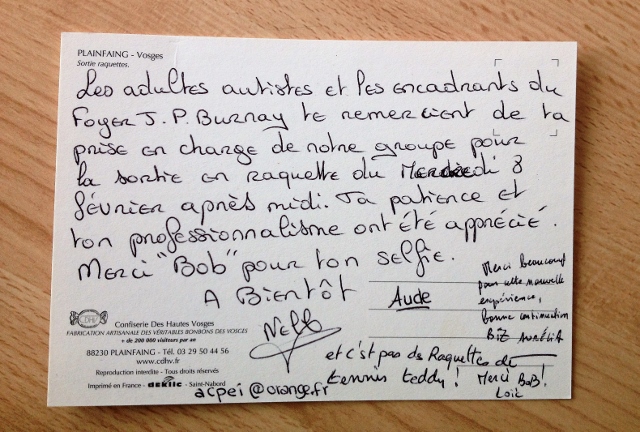 PLAINFAING - Vosges
Sortie raquettes.
Les adultes autistes et les encadrants du
Foyer J.P. Burnay te remercient de ta
prise en charge de notre groupe pour
la sortie en raquette du Mercredi 8
février après midi. Ta patience et
ton professionnalisme ont été apprécié.
Merci "Bob" pour ton selfie.
A Bientôt
Aude
Merci Beaucoup
pour cette nouvelle
expérience,
bonne continuation
BiZ AuRéLiA
CDHV
Confiserie Des Hautes Vosges
FABRICATION ARTISANALE DES VÉRITABLES BONBONS DES VOSGES
+ de 200 000 visiteurs par an
88230 PLAINFAING - Tél. 03 29 50 44 56
www.cdhv.fr
Reproduction interdite - Tous droits réservés
Imprimé en France - - Saint-Nabord
acpei@orange.fr
et c'est pas ds Raquettes de
tennis teddy !
Merci BoB!
Loïc